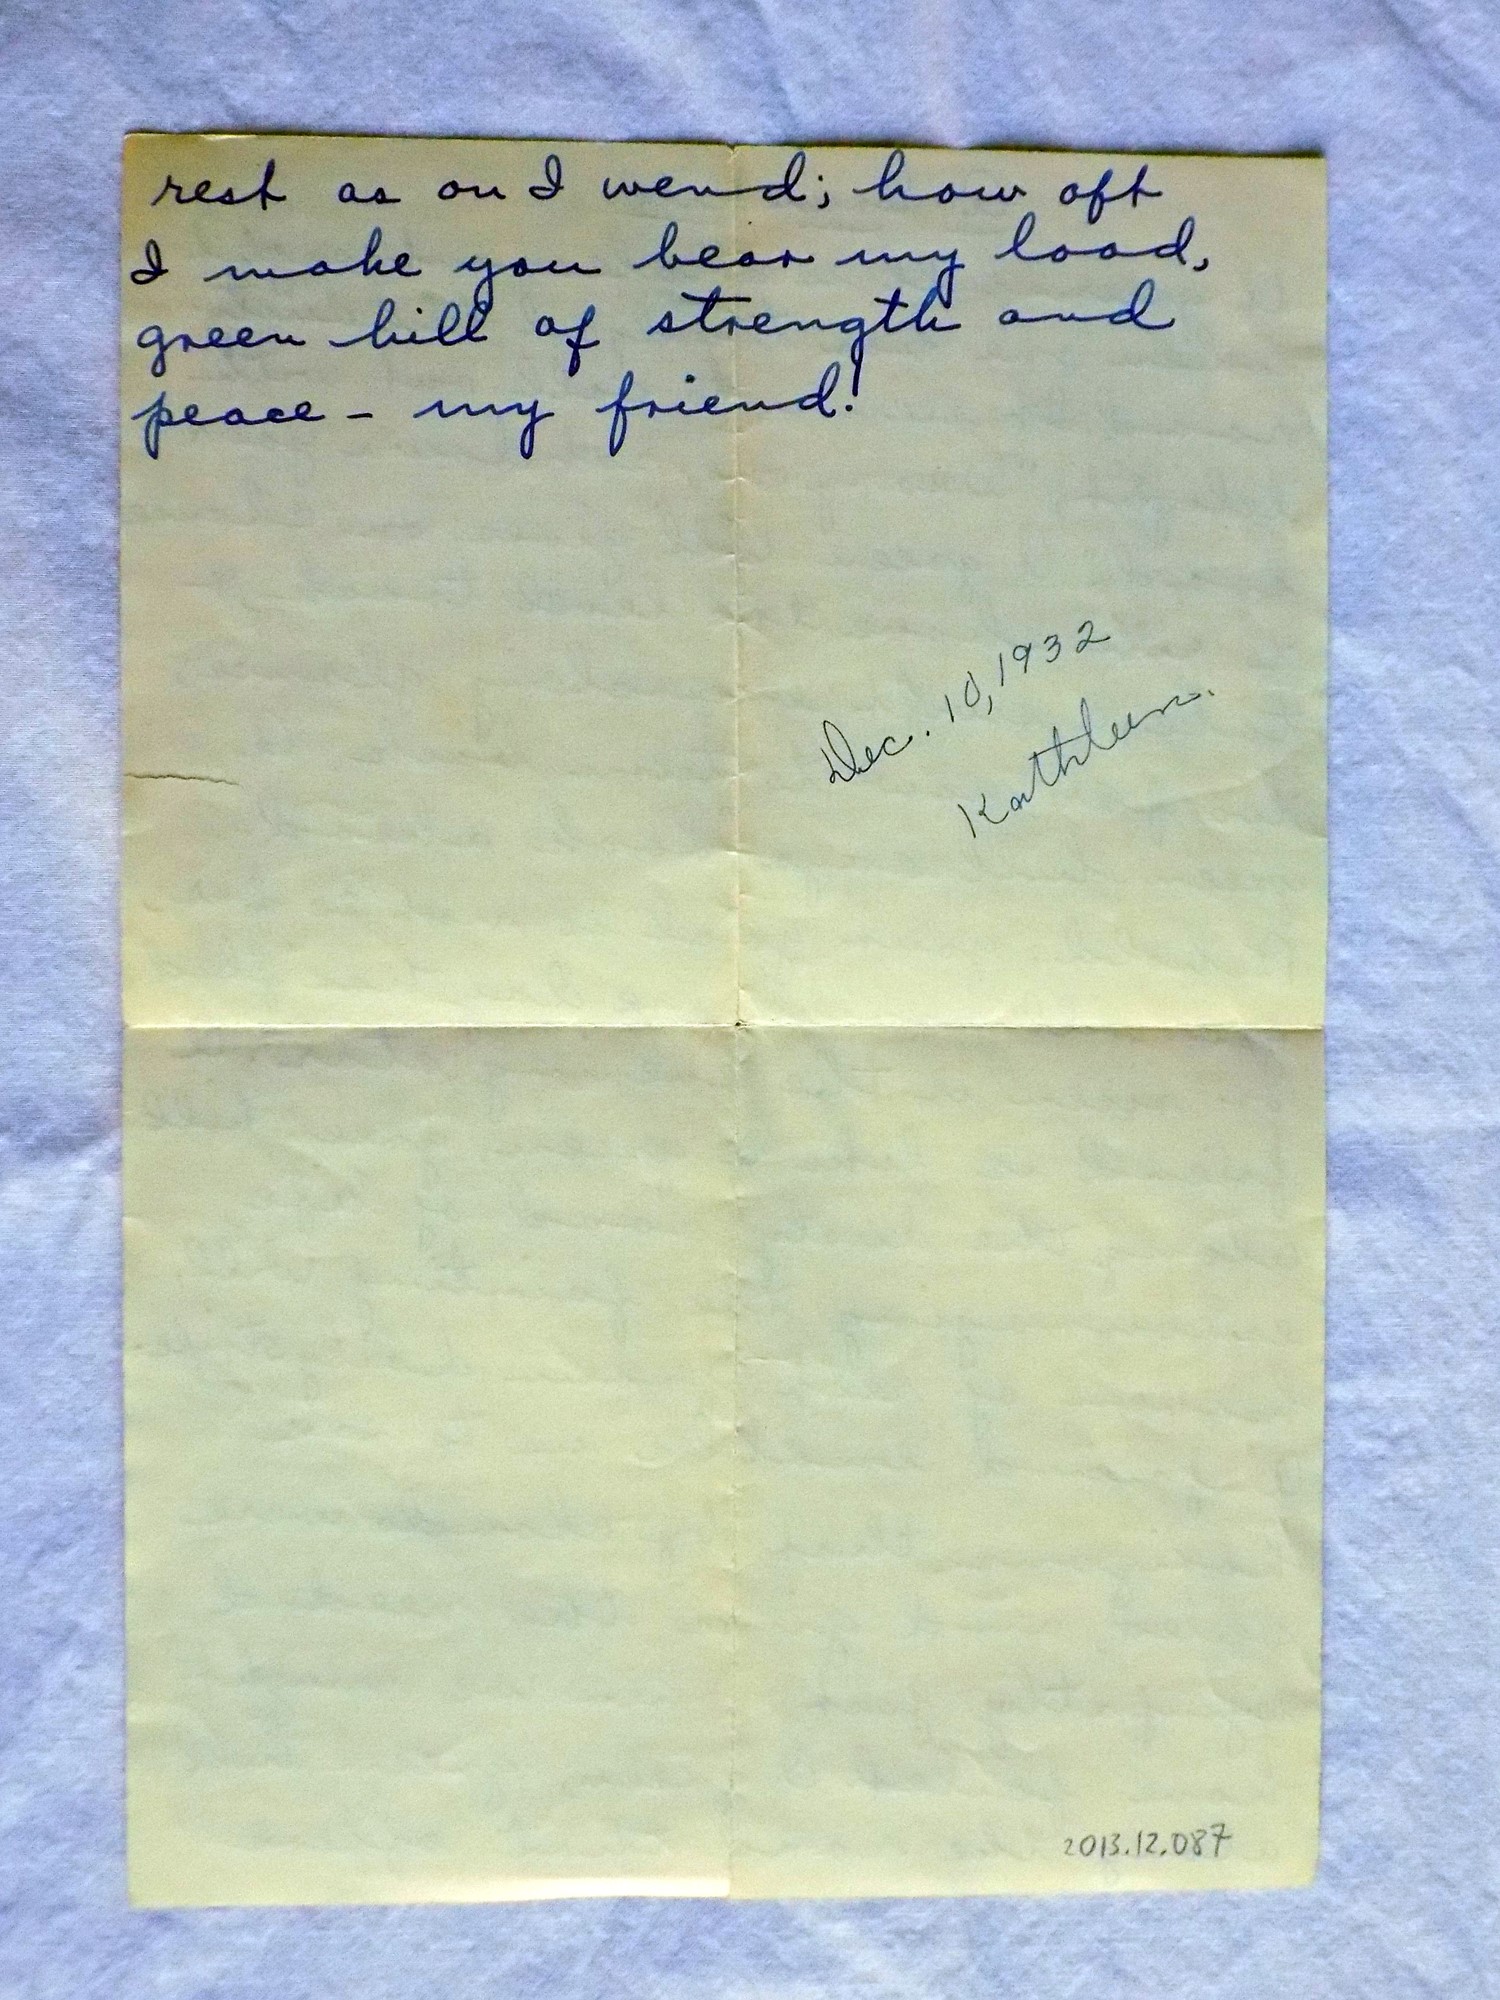 rest as on I wend; how oft
I make you bear my load,
green hill of strength and
peace - my friend!
Dec. 10, 1932
Kathleen.
2013.12.087